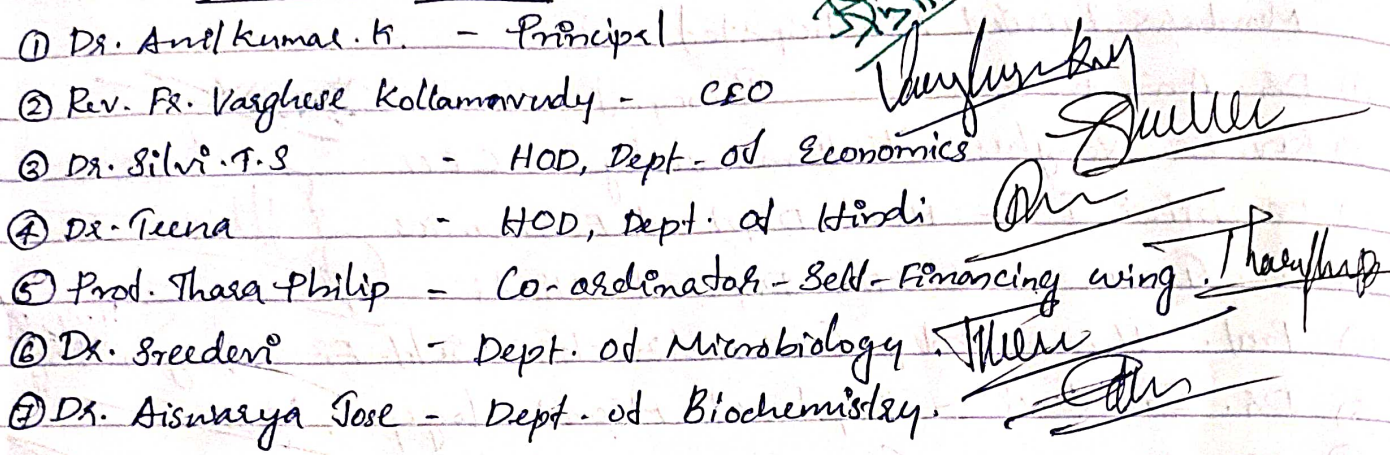 ① Dr. Anilkumar. K. - Principal
② Rev. Fr. Varghese Kollamavudy - CEO
③ Dr. Silvi. T. S - HOD, Dept. of Economics
④ Dr. Teena - HOD, Dept. of Hindi
⑤ Prof. Thara Philip - Co-ordinator - Self-Financing wing.
⑥ Dr. Sreedevi - Dept. of Microbiology.
⑦ Dr. Aiswarya Jose - Dept. of Biochemistry.